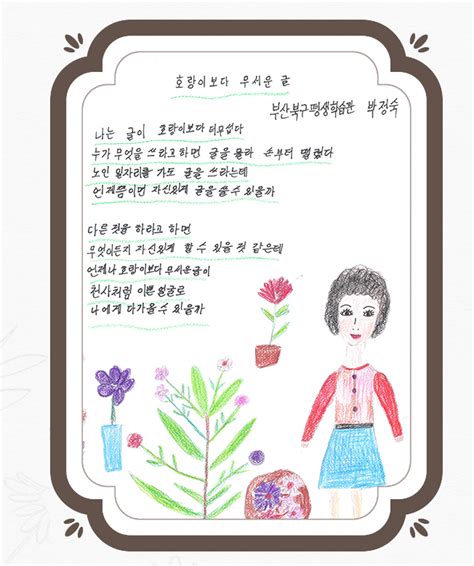 호랑이보다 무서운 글
부산북구평생학습관 박정숙
나는 글이 호랑이보다 더무섭다
누가 무엇을 쓰라고하면 글을 몰라 손부터 떨렸다
노인 일자리를 가도 글을 쓰라는데
언제쯤이면 자신있게 글을 쓸 수 있을까
다른 것을 하라고 하면
무엇이든지 자신있게 할 수 있을 것 같은데
언제나 호랑이보다 무서운글이
천사처럼 이쁜 얼굴로
나에게 다가올수 있을까